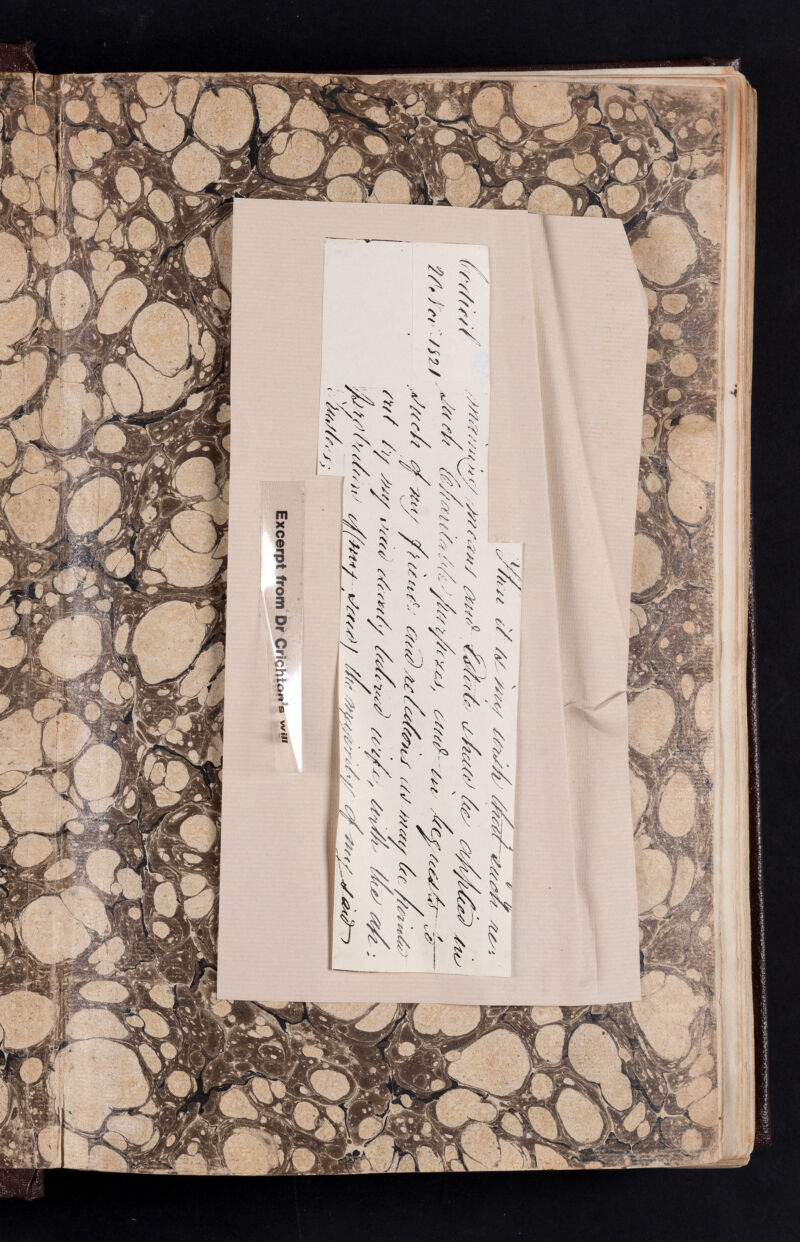 Codicil
20 Nov: 1821
Then it is my wish that such re:
maining means and Estate shall be applied in
such Charitable purposes, and in bequests to
such of my friends and relations as may be pointed
out by my said dearly beloved wife, with the ap:
probation of the majority of my said
Trustees;
Excerpt from Dr Crichton's will